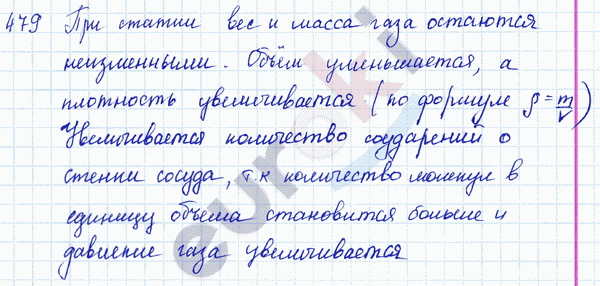 479 При статии вес и масса газа остаются
неизменными. Объём уменьшается, а
плотность увеличивается (по формуле ρ = m/V)
Увеличивается количество соударений о
стенки сосуда, т.к количество молекул в
единицу объема становится больше и
давление газа увеличивается
euroki